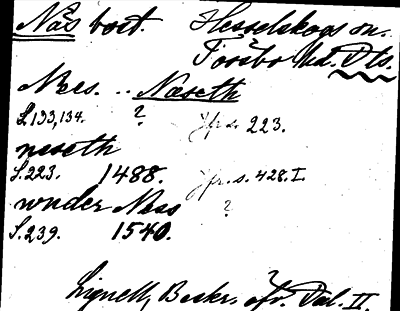 Näs bort. Hesselskogs sn.
Tössbo hd. Dls.
Nes. .. Næseth
S. 133, 134. ? Jfr s. 223.
neseth
S. 223. 1488. Jfr. s. 428. I.
wnder Ness ?
S. 239. 1540.
Lignell, Beskr. öfv. Dal. II.